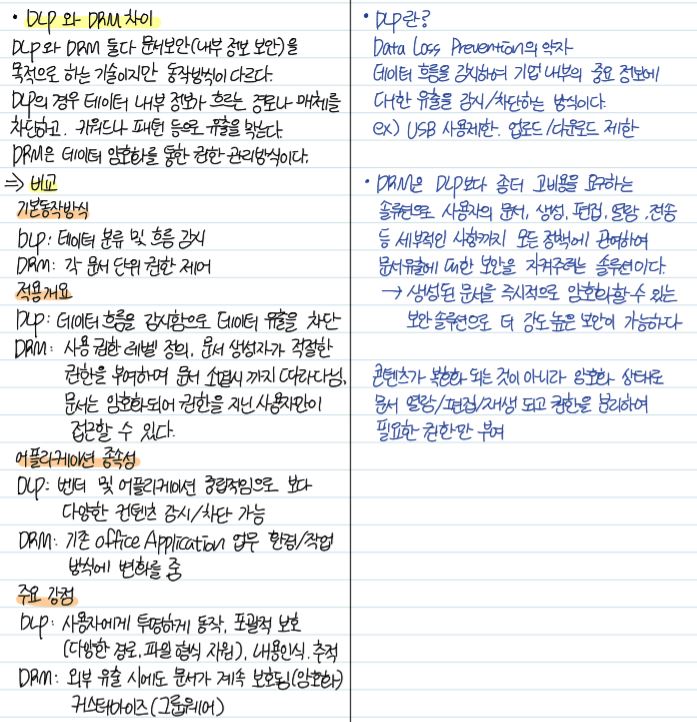 • DLP와 DRM 차이
DLP와 DRM 둘다 문서보안(내부 정보 보안)을
목적으로 하는 기술이지만 동작방식이 다르다.
DLP의 경우 데이터 내부 정보가 흐르는 경로나 매체를
차단하고, 키워드나 패턴 등으로 유출을 막는다.
DRM은 데이터 암호화를 통한 권한 관리방식이다.
⇒ 비교
기본동작방식
DLP : 데이터 분류 및 흐름 감시
DRM : 각 문서 단위 권한 제어
적용개요
DLP : 데이터 흐름을 감시함으로 데이터 유출을 차단
DRM : 사용 권한 레벨 정의, 문서 생성자가 적절한
권한을 부여하며 문서 소멸시 까지 따라다님,
문서는 암호화되어 권한을 지닌 사용자만이
접근할 수 있다.
어플리케이션 종속성
DLP : 벤더 및 어플리케이션 중립적임으로 보다
다양한 컨텐츠 감시/차단 가능
DRM : 기존 office Application 업무 환경/작업
방식에 변화를 줌
주요 강점
DLP : 사용자에게 투명하게 동작, 포괄적 보호
(다양한 경로, 파일 형식 지원), 내용인식, 추적
DRM : 외부 유출 시에도 문서가 계속 보호됨(암호화)
커스터마이즈(그룹웨어)
• DLP란?
Data Loss Prevention의 약자
데이터 흐름을 감시하여 기업 내부의 중요 정보에
대한 유출을 감시/차단하는 방식이다.
ex) USB 사용제한, 업로드/다운로드 제한
• DRM은 DLP보다 좀더 고비용을 요구하는
솔루션으로 사용자의 문서, 생성, 편집, 열람, 전송
등 세부적인 사항까지 모든 정책에 관여하여
문서유출에 대한 보안을 지켜주려는 솔루션이다.
→ 생성된 문서를 즉시적으로 암호화할 수 있는
보안 솔루션으로 더 강도 높은 보안이 가능하다
콘텐츠가 복호화 되는 것이 아니라 암호화 상태로
문서 열람/편집/재생 되고 권한을 분리하여
필요한 권한만 부여